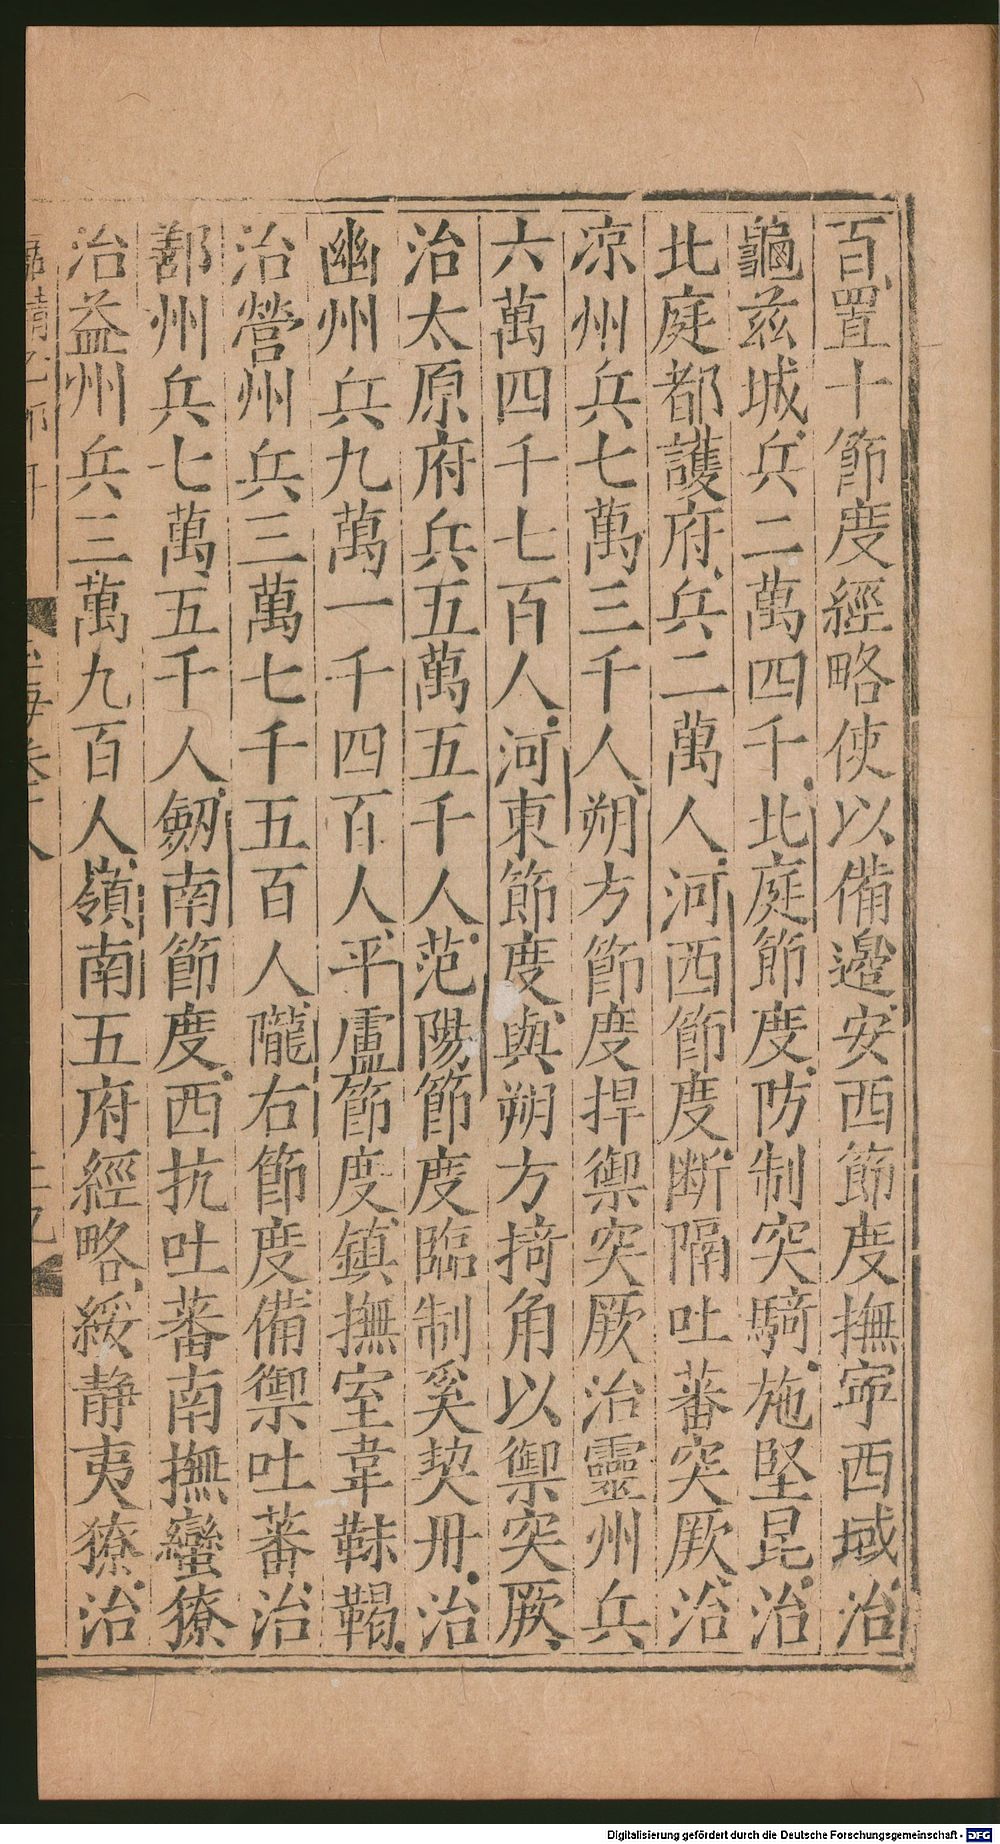 百置十節度經略使以備邊安西節度撫寧西域治
龜茲城兵二萬四千北庭節度防制突騎施堅昆治
北庭都護府兵二萬人河西節度斷隔吐蕃突厥治
涼州兵七萬三千人朔方節度捍禦突厥治靈州兵
六萬四千七百人河東節度與朔方掎角以禦突厥
治太原府兵五萬五千人范陽節度臨制奚契丹治
幽州兵九萬一千四百人平盧節度鎮撫室韋靺鞨
治營州兵三萬七千五百人隴右節度備禦吐蕃治
鄯州兵七萬五千人劒南節度西抗吐蕃南撫蠻獠
治益州兵三萬九百人嶺南五府經略綏静夷獠治
Digitalisierung gefördert durch die Deutsche Forschungsgemeinschaft - DFG